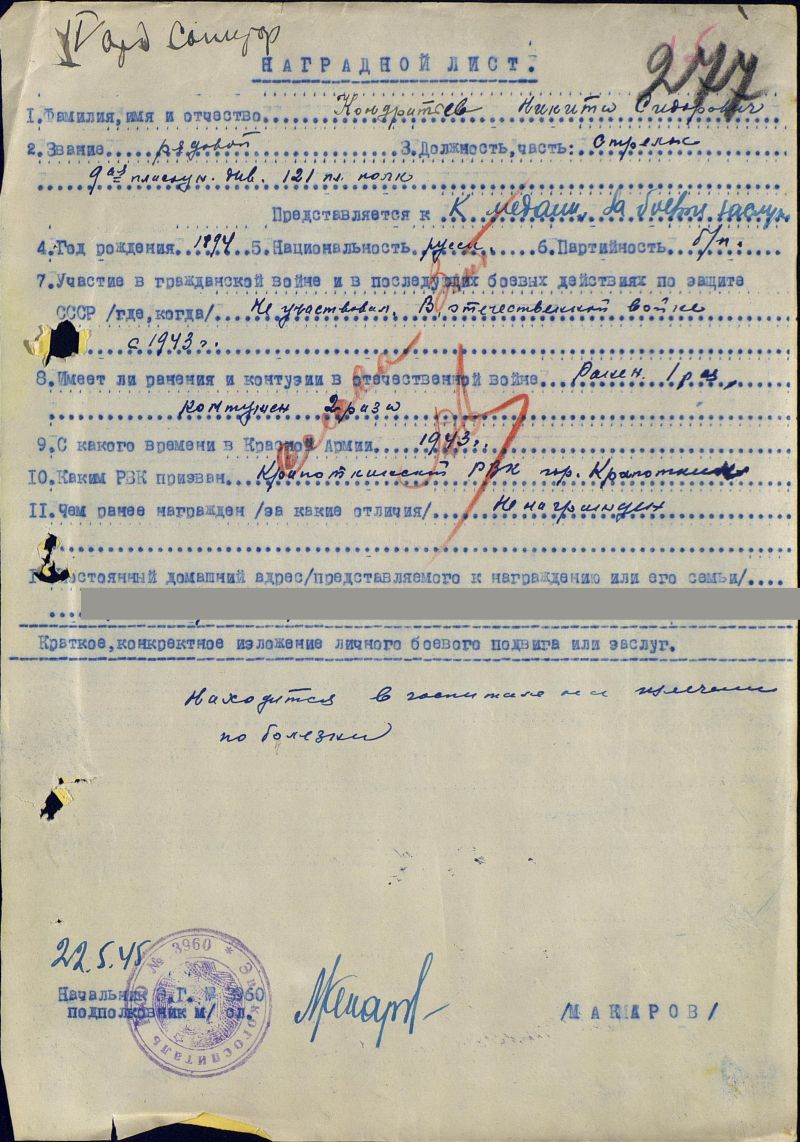 277
НАГРАДНОЙ ЛИСТ.
1. Фамилия, имя и отчество Кондратьев Никита Сидорович
2. Звание рядовой 3. Должность, часть: Стрелок
9ая пластун. див. 121 пл. полк
Представляется к К медали За боевые заслуги
4. Год рождения 1894 5. Национальность русск. 6. Партийность б/п.
7. Участие в гражданской войне и в последующих боевых действиях по защите
СССР /где, когда/ Не участвовал. В отечественной войне
с 1943 г.
8. Имеет ли ранения и контузии в отечественной войне Ранен 1 раз,
контужен 2 раза
9. С какого времени в Красной Армии 1943 г.
10. Каким РВК призван Кропоткинский РВК гор. Кропоткин
11. Чем ранее награжден /за какие отличия/ Не награжден
Постоянный домашний адрес/представляемого к награждению или его семьи/
Краткое, конкретное изложение личного боевого подвига или заслуг.
Находится в госпитале на излечении
по болезни
22.5.45
№ 3960 * Эвакогоспиталь
Начальник Э.Г. № 3960
подполковник м/сл.
Макаров
/МАКАРОВ/